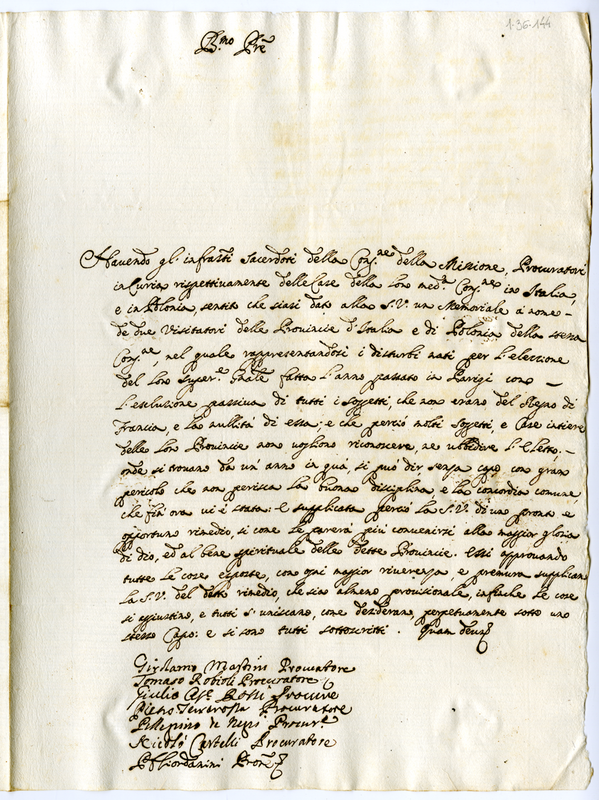 1-36-144
B.mo Pre
Havendo gl' infratti Sacerdoti della Con.ne della Missione, Procuratori
in Curia rispettivamente delle Case della loro med.a Con.ne in Italia,
e in Polonia, sentito che siasi dato alla S.V. un Memoriale a nome
de due Visitatori delle Provincie d'Italia e di Polonia della stessa
Con.ne nel quale rappresentandosi i disturbi nati per l'elezzione
del loro Super.e Gnale fatta l'anno passato in Parigi con
l'esclusione passiva di tutti i soggetti, che non erano del Regno di
Francia, e la nullità di essa; e che perciò molti soggetti e Case intiere
delle loro Provincie non vogliono riconoscere, ne ubbidire l'Eletto,
onde si trovano da un' anno in quà, si può dir senza capo con gran
pericolo che non perisca la buona disciplina, e la concordia comune,
che fin' ora vi è stata: e supplicata perciò la S.V. di un pronto e
opportuno rimedio, si come le parerà più convenirsi alla maggior gloria
di Dio, ed al bene spirituale delle dette Provincie. Essi approvando
tutte le cose esposte, con ogni maggior riverenza, e premura supplicano
la S.V. del detto rimedio, che sia almeno provisionale, infinche le cose
si aggiustino, e tutti s' uniscano, come desiderano, perpetuamente sotto uno
stesso Capo: e si sono tutti sottoscritti. Quam Deus
Girolamo Mastini Procuratore
Tomaso Robioli Procuratore
Giulio Ces.e Rossi Procure
Pietro Terrarossa Procuratore
Pellegrino de Negri Procur.e
Nicolò Castelli Procuratore
P. Giordanini Prore